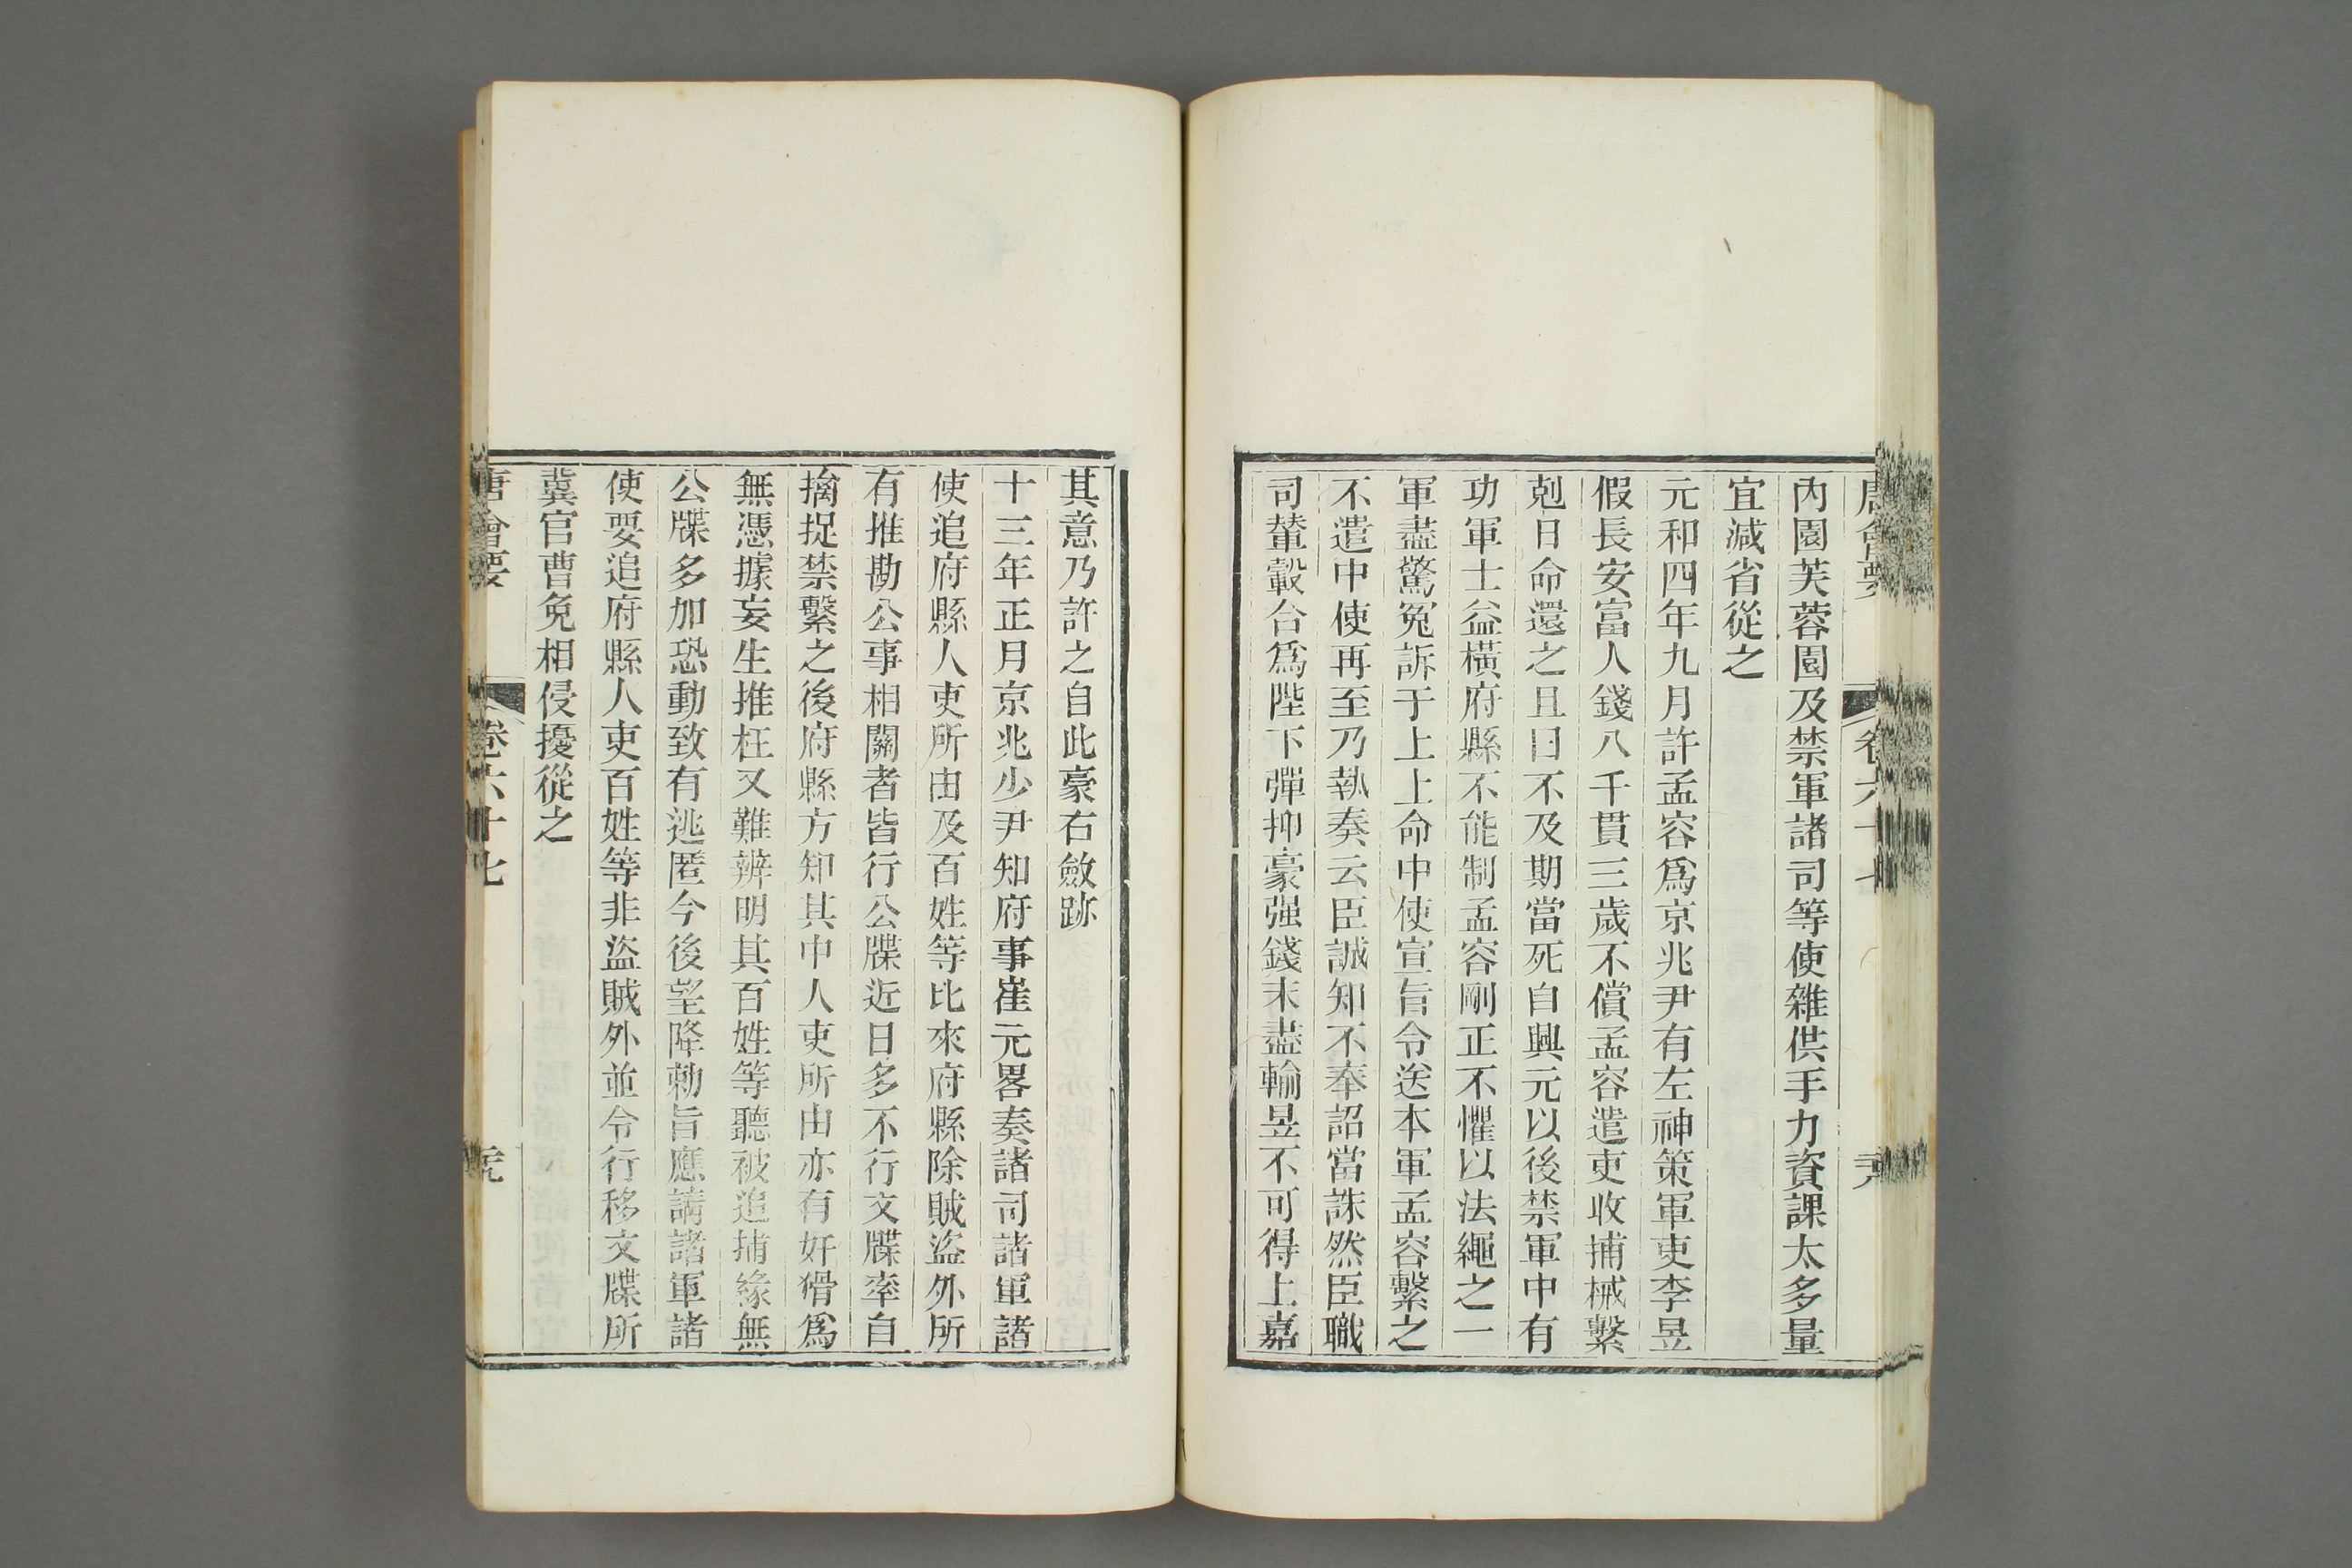 唐會要 卷六十七
內園芙蓉園及禁軍諸司等使雜供手力資課太多量
宜減省從之
元和四年九月許孟容爲京兆尹有左神策軍吏李昱
假長安富人錢八千貫三歲不償孟容遣吏收捕械繫
剋日命還之且曰不及期當死自興元以後禁軍中有
功軍士益橫府縣不能制孟容剛正不懼以法繩之一
軍盡驚冤訴于上上命中使宣旨令送本軍孟容繫之
不遣中使再至乃執奏云臣誠知不奉詔當誅然臣職
司輦轂合爲陛下彈抑豪强錢未盡輸昱不可得上嘉
其意乃許之自此豪右斂跡
十三年正月京兆少尹知府事崔元畧奏諸司諸軍諸
使追府縣人吏所由及百姓等比來府縣除賊盜外所
有推勘公事相關者皆行公牒近日多不行文牒率自
擒捉禁繫之後府縣方知其中人吏所由亦有奸猾爲
無憑據妄生推枉又難辨明其百姓等聽被追捕緣無
公牒多加恐動致有逃匿今後望降勅旨應請諸軍諸
使要追府縣人吏百姓等非盜賊外並令行移文牒所
冀官曹免相侵擾從之
唐會要 卷六十七